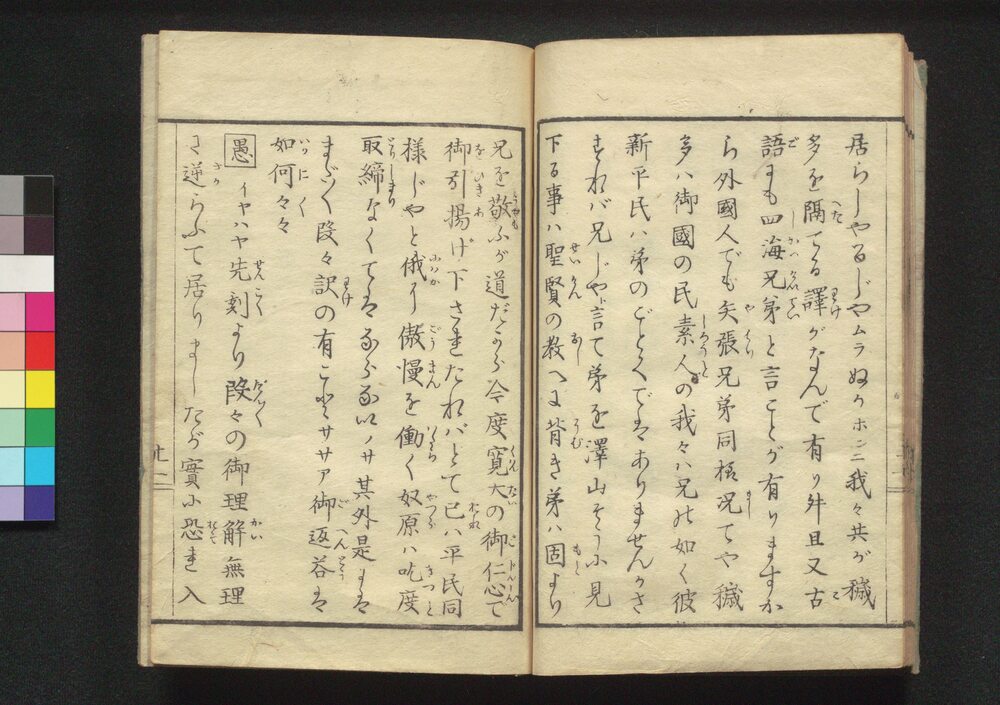 居らしやるじやムラぬかホンニ我々共が穢
多を隔てる譯がなんで有り升且又古
語にも四海兄弟と言ことが有りますか
ら外國人でも矢張兄弟同様况てや穢
多ハ御國の民素人の我々ハ兄の如く彼
新平民ハ弟のごとくでハありませんかさ
すれバ兄じやト言て弟を澤山そうふ見
下る事ハ聖賢の教へに背き弟ハ固より
兄を敬ふが道だから今度寛大の御仁心で
御引揚げ下されたれバとて已ハ平民同
様じやと俄に傲慢を働く奴原ハ吃度
取締なくてハ
其外是にハ
まだ〱段々訳の有ことサ サア御返答ハ
如何々々
愚 イヤハヤ先刻より段々の御理解無理
さ逆らふて居りましたが實に恐れ入
廿一